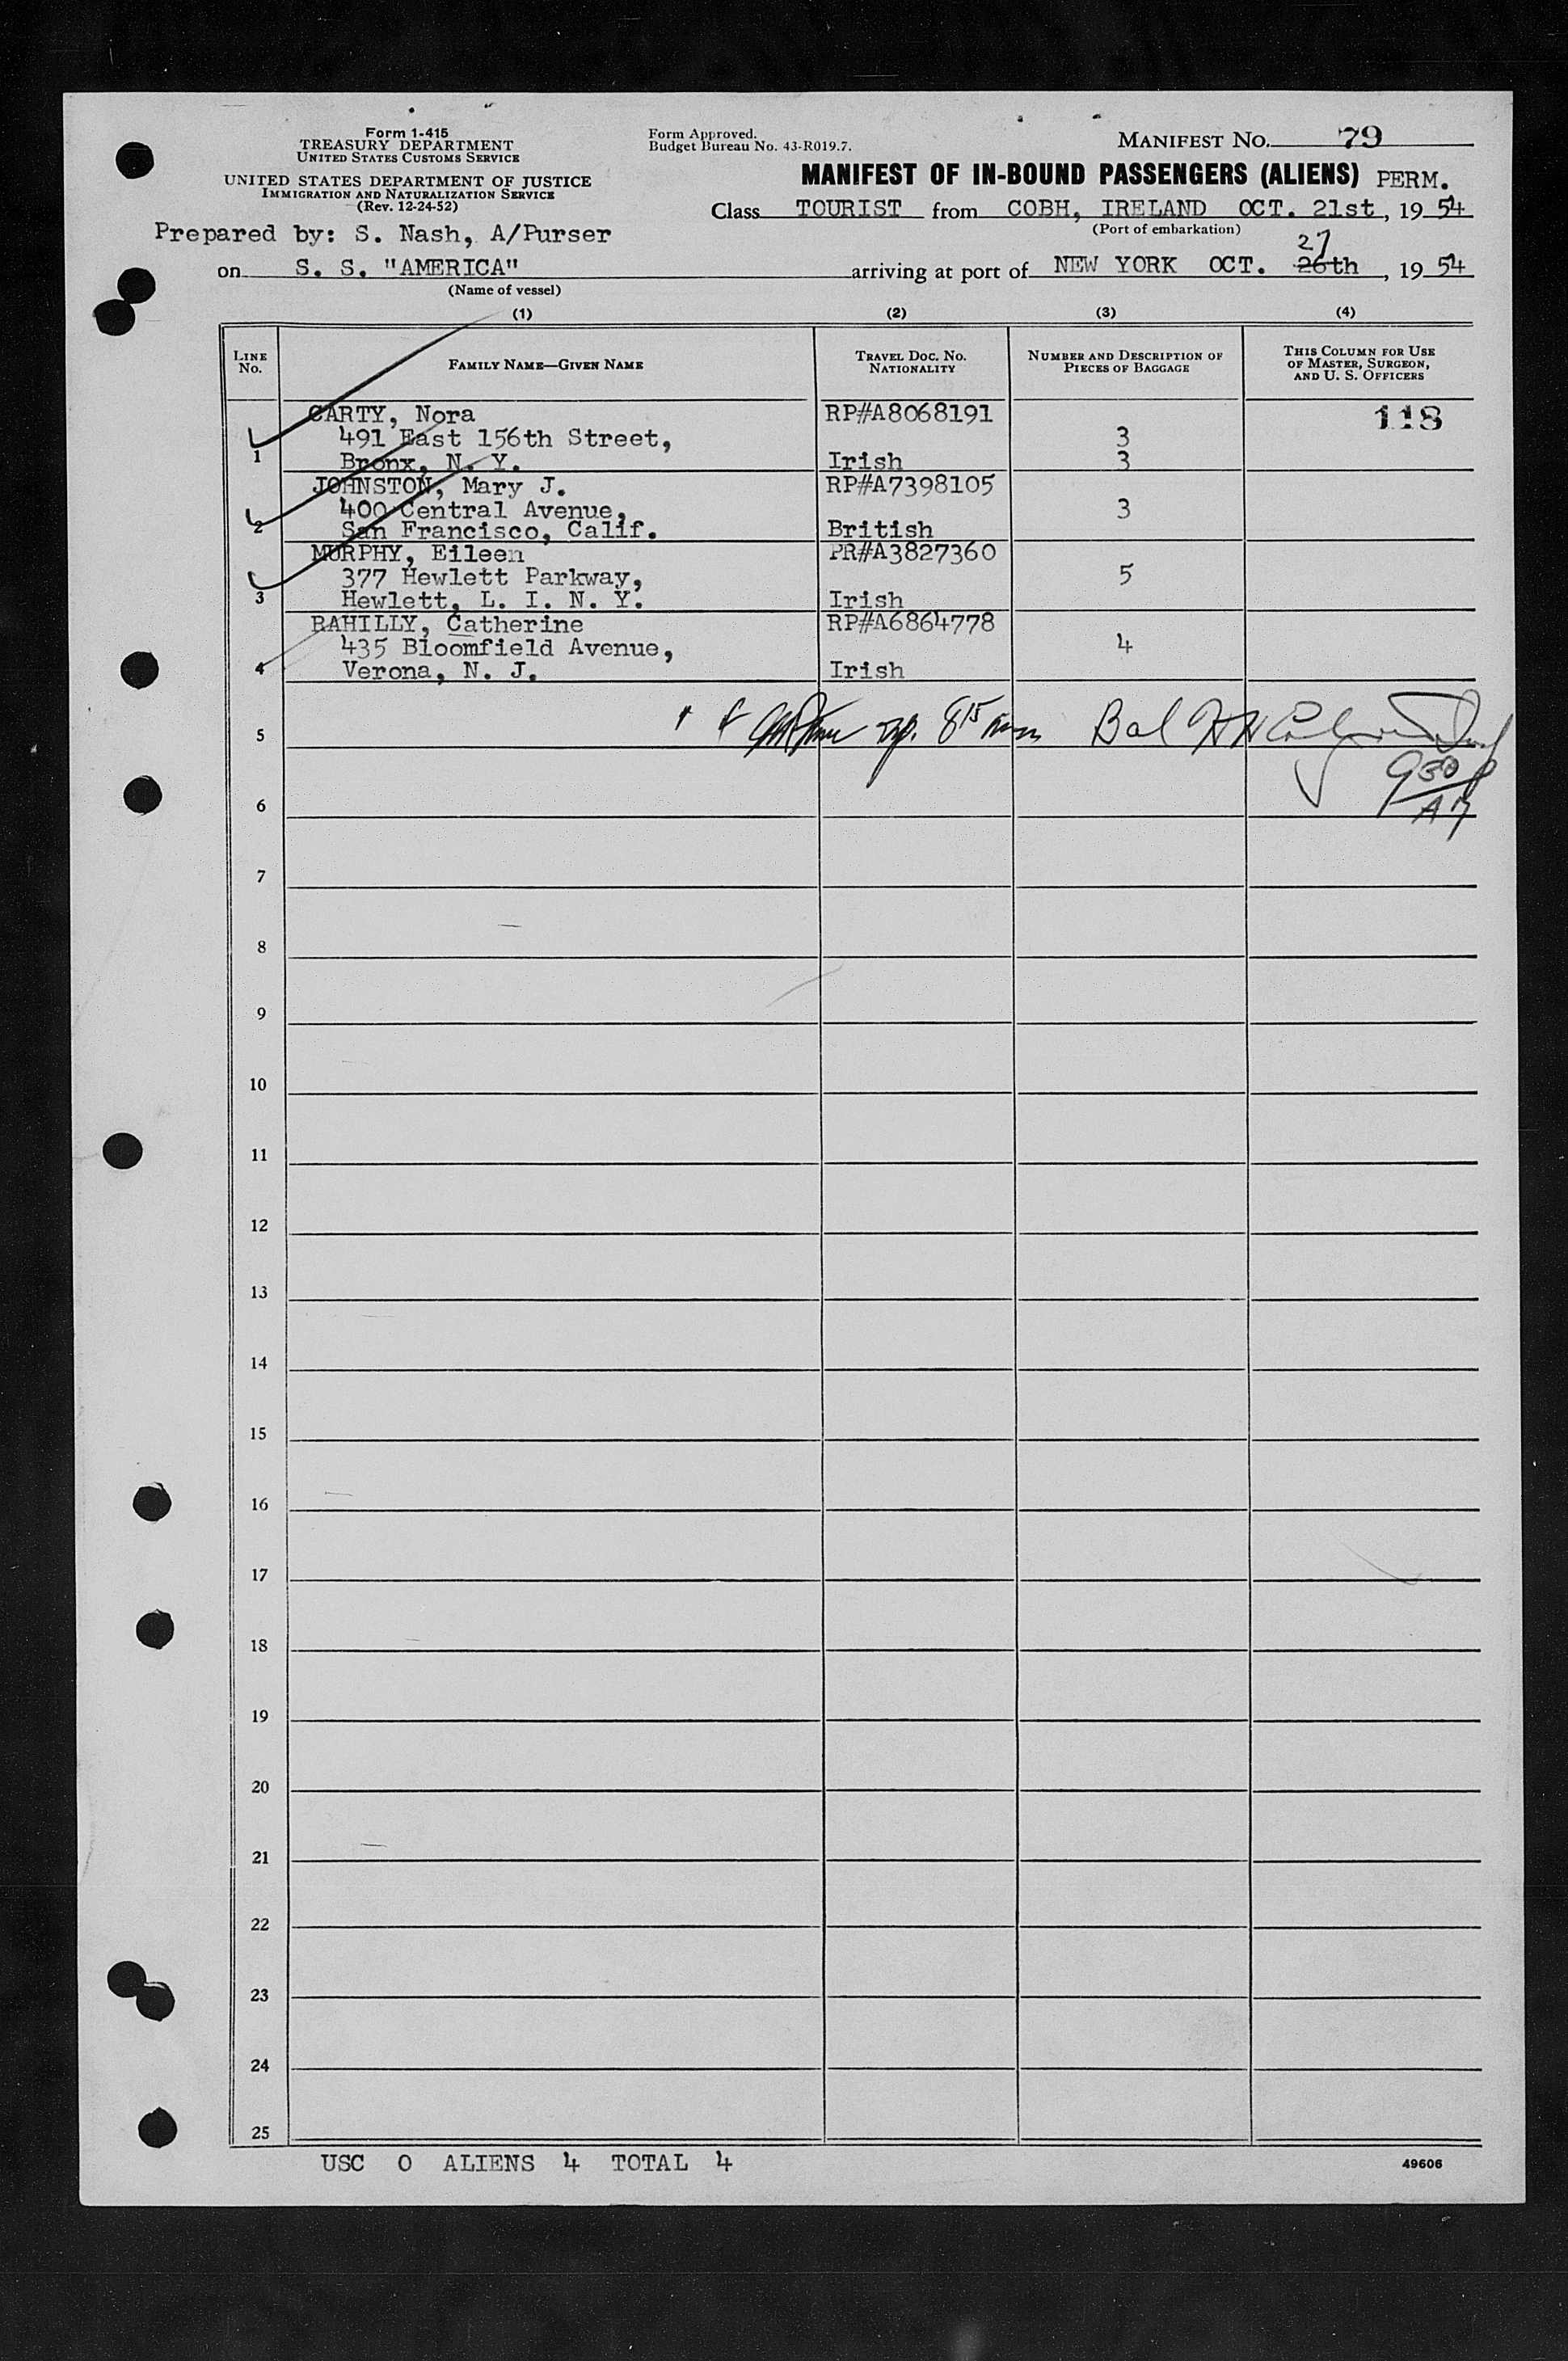 Form 1-415
TREASURY DEPARTMENT
UNITED STATES CUSTOMS SERVICE
UNITED STATES DEPARTMENT OF JUSTICE
IMMIGRATION AND NATURALIZATION SERVICE
(Rev. 12-24-52)
Form Approved.
Budget Bureau No. 43-R019.7.
MANIFEST NO. 79
MANIFEST OF IN-BOUND PASSENGERS (ALIENS) PERM.
Class TOURIST from COBH, IRELAND OCT. 21st, 19 54
(Port of embarkation)
Prepared by: S. Nash, A/Purser
27
on S. S. "AMERICA" arriving at port of NEW YORK OCT. 26th, 19 54
(Name of vessel)
(1) (2) (3) (4)
LINE No. FAMILY NAME—GIVEN NAME TRAVEL DOC. NO. NATIONALITY NUMBER AND DESCRIPTION OF PIECES OF BAGGAGE THIS COLUMN FOR USE OF MASTER, SURGEON, AND U. S. OFFICERS
CARTY, Nora RP#A8068191 118
491 East 156th Street, 3
1 Bronx, N. Y. Irish 3
JOHNSTON, Mary J. RP#A7398105
400 Central Avenue, 3
2 San Francisco, Calif. British
MURPHY, Eileen PR#A3827360
377 Hewlett Parkway, 5
3 Hewlett, L. I. N. Y. Irish
RAHILLY, Catherine RP#A6864778
435 Bloomfield Avenue, 4
4 Verona, N. J. Irish
5 815 Bal
930
AM
6
7
8
9
10
11
12
13
14
15
16
17
18
19
20
21
22
23
24
25
USC 0 ALIENS 4 TOTAL 4
49606